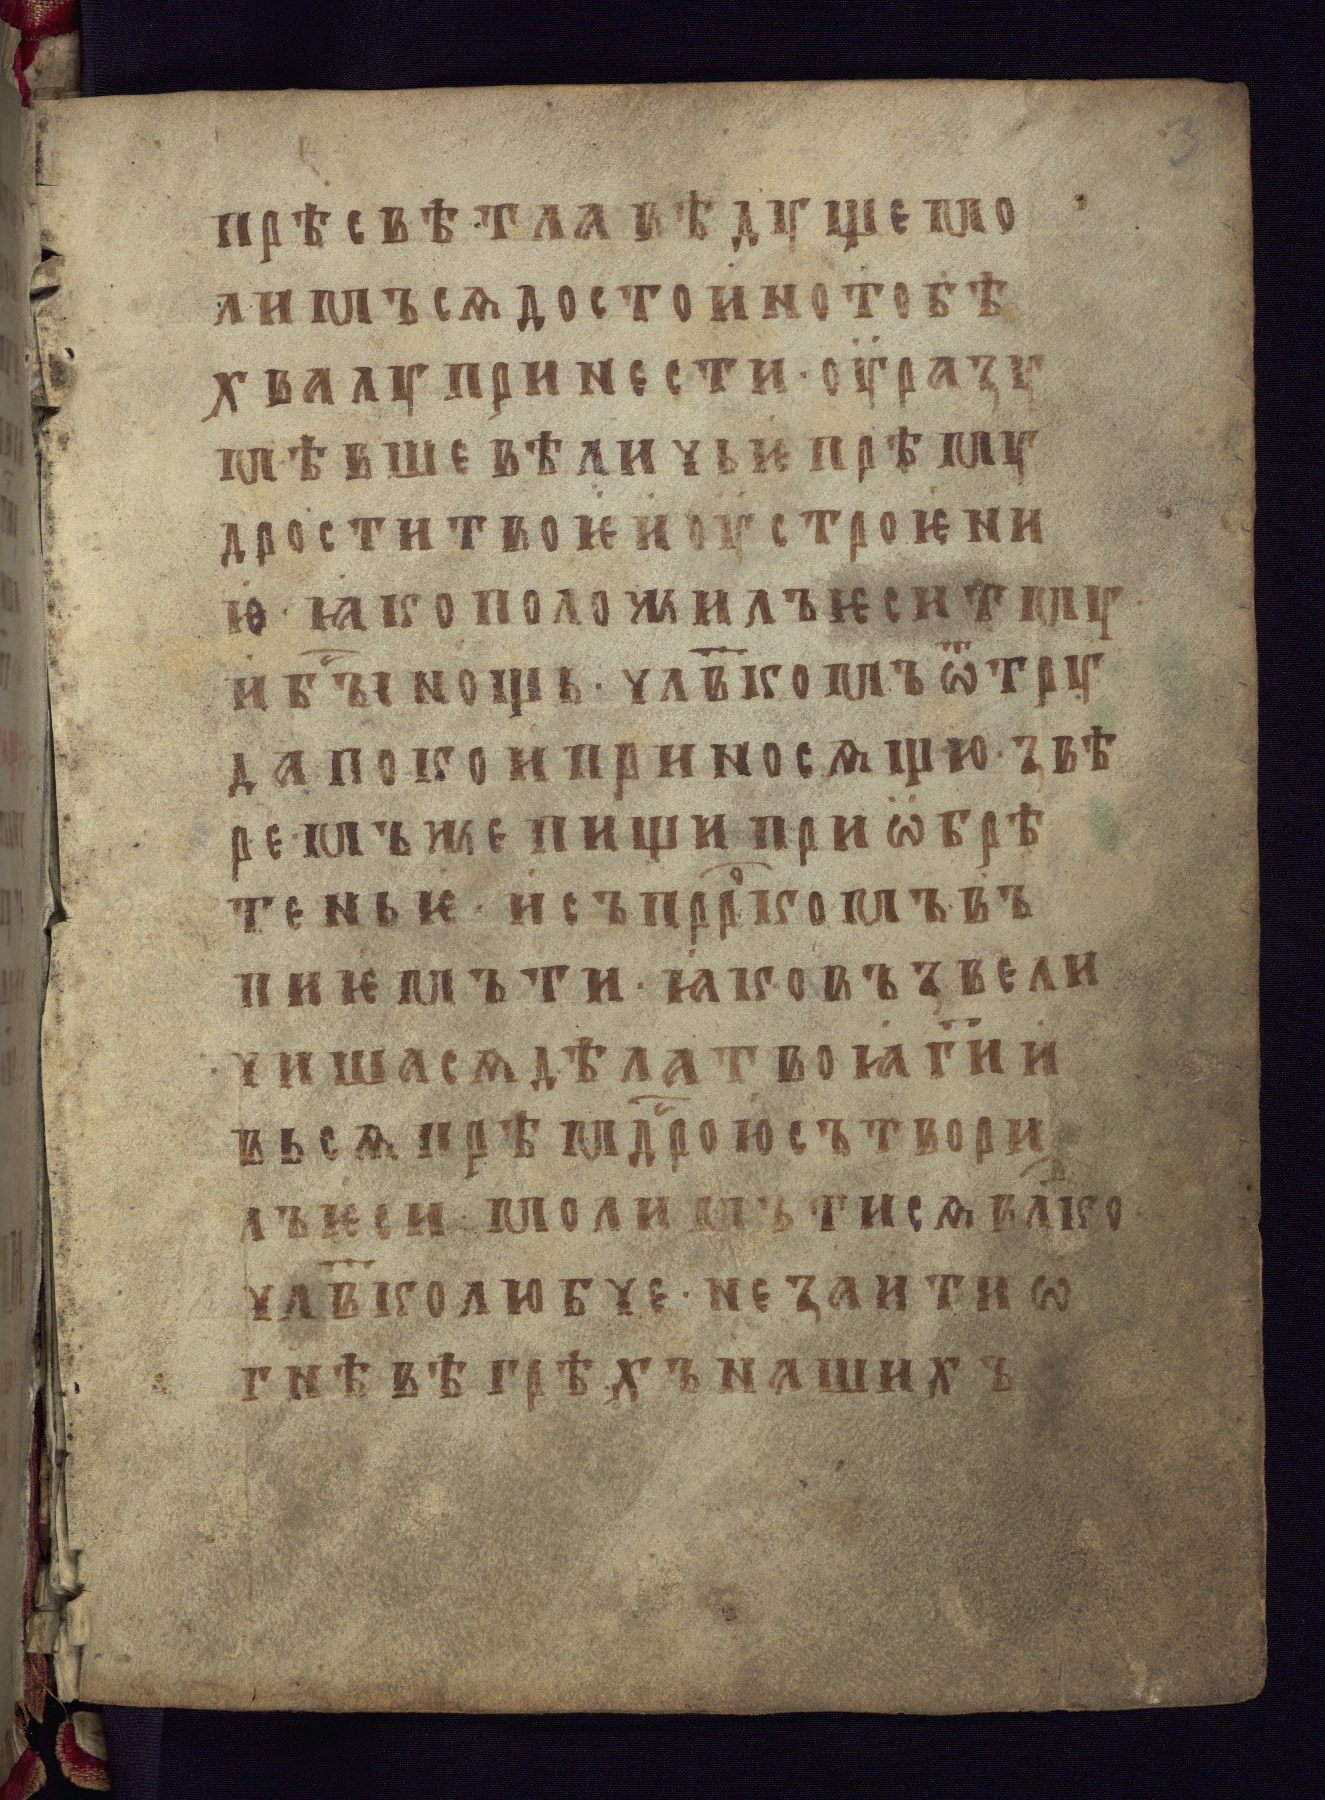 3
прѣсвѣтлавѣдꙋщемо
лимъсѧдостоинотобѣ
хвалꙋпринести·оуразꙋ
мѣвшевѣличьѥпрѣмꙋ
дроститвоѥиоустроѥни
ѥ·ꙗкоположилъѥситмꙋ
ибꙑнощь·члв҃комъѿтрꙋ
дапокоиприносѧщю·ꙁвѣ
ремъжепищиприѡбрѣ
теньѥ·исъпррⷪ҇комъвъ
пиѥмъти·ꙗковъꙁвели
чишасѧдѣлатвоꙗг҃ии
вьсѧпрѣмдⷭ҇роюсътвори
лъѥси·молимътисѧвлⷣко
члв҃колюбче·неꙁаитиѡ
гнѣвѣгрѣхънашихъ